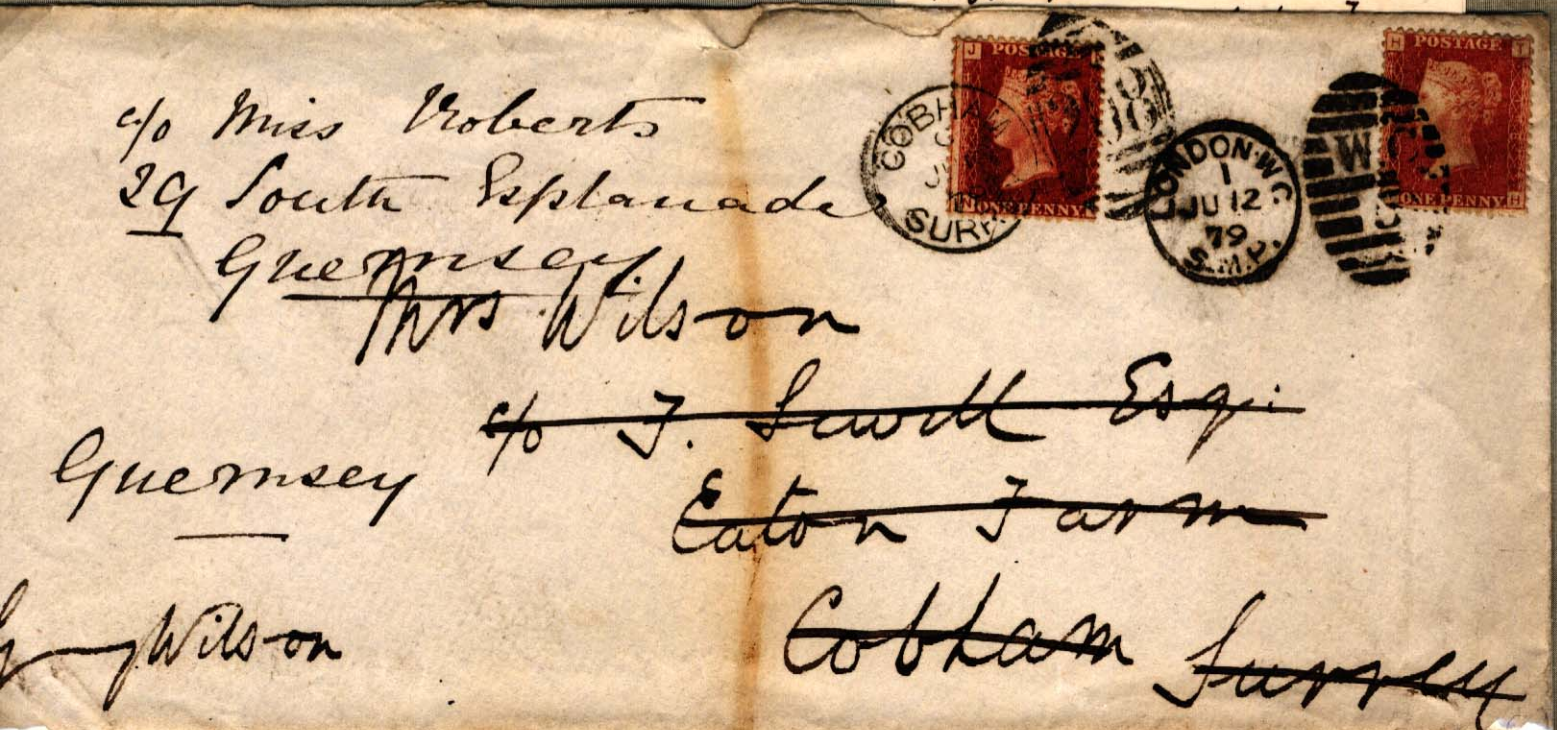 c/o Miss Roberts
29 South Esplanade
Guernsey.
Mrs. Wilson
c/o J. Sewell Esq.
Eaton Farm
Cobham Surrey
Guernsey
Wilson
J POSTAGE
ONE PENNY
COBHAM
SURR
LONDON·W.C.
1
JU 12
79
S.M.P.
W
H POSTAGE T
ONE PENNY H